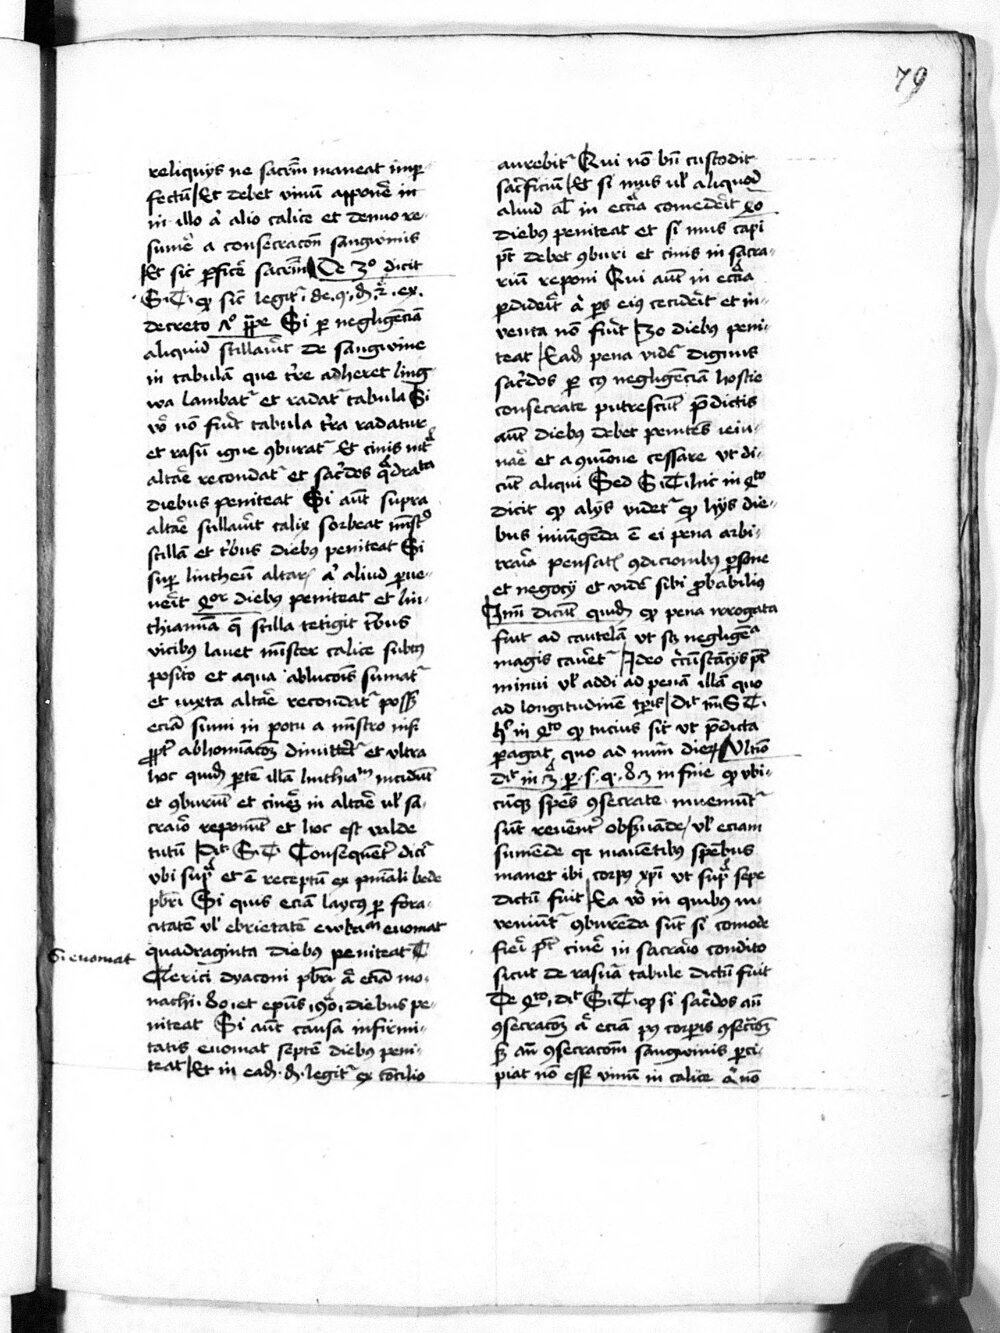 79
reliquijs ne sacrm maneat imp
fectu Et debet vinu apponē in
in illo aͥ alio calice et denuo re
sumē a consecracōn sangwinis
Et sic pficē sacrm De 3o dicit
S T qͥ sic legitᷣ de
decreto Si p negligēciā
aliquid stillauit de sangwine
in tabulā que tre adheret ling
wa lambatᷣ et radatᷣ tabula Si
vo nō fuit tabula tra radatur
et rasū igne ꝯburatᷣ Et cinis int
altare recondatᷣ et sacdos qͣdrata
diebus peniteat Si aut supra
altare stillauit calix sorbeat minstᷣ
stillā et tbus diebꝰ peniteat Si
sup lintheū altarꝭ aͥ aliud pue
nerit qor diebꝰ peniteat et lin
thiamia qͥ stilla tetigit tbus
vicibus lauet minster calice subtꝰ
posito et aqua ablucōis sumatᷣ
et iuxta altare recondatᷣ poss
eciā sumi in potu a minstro nisi
ppt abhominacōem dimitteretᷣ et vltra
hoc quidē partē illā linthiami incidūt
et ꝯburūt et cinerē in altare vl sa
crario reponūt et hoc est valde
tutū Dit S T Consequēter dicit
vbi supͣ et ē receptū ex pniali bede
pbri Si quis eciā laycꝰ p fora
citatē vl ebrietatē ewkariam euomat
Si euomat
quadraginta diebus peniteat
Clerici dyaconi pbri aͥ eciā mo
nachi lxo et epūs 90 diebus pe
niteat Si aut causa infirmi
tatis euomat septē diebꝰ peni
teat Et in eadē d legitᷣ ex cōcilio
aurebitᷣ Qui nō bn custodit
sacficiū Et si mus vl aliquod
aliud al in eccia comederit qo
diebus peniteat et si mus capi
pt debet ꝯburi et cinis in sacra
riū reponi Qui aut in eccia
pdiderit aͥ ps eiꝰ ceciderit et in
uenta nō fuit 30 diebus peni
teat Eadē pena videtᷣ dignus
sacdos p cꝰ negligēciā hostie
consecrate putrescūt pdictis
aut diebus debet penitēs ieiu
nare et a ꝯmūione cessare vt di
cūt aliqui Sed S T hic in qto
dicit qͥ alijs videtᷣ qͥ hijs die
bus iniūgenda ē ei pena arbi
traria pensatꝭ ꝯdicionibꝰ psone
et negocij et videtᷣ sibi pbabilius
Itm dicūt quidē qͥ pena irrogata
fuit ad cautelā vt sꝫ negligēcia
magis caueretᷣ Ideo circūstancijs pt
minui vl addi ad penā illā quo
ad longitudinē tpris Dit tn S T
hͥ in qto qͥ tucius sit vt pdicta
pagatᷣ quo ad num dierꝝ Vltio
dit in 3 p s q d 3 in fine qͥ vbi
cūqꝫ spēs ꝯsecrate inueniūtᷣ
sūt reuenter obseruande vl eciam
sumēde qr manentibꝰ speciebus
manet ibi corpꝰ xpi vt supͣ sepe
dictū fuit Ea vo in quibus in
ueniūtᷣ ꝯburēda sūt si comode
fieri pt cinere in sacrario condito
sicut de rasura tabule dictū fuit
De qto dit S T qͥ si sacdos an
ꝯsecracōem aͥ eciā pꝰ corpis ꝯsecracōem
sꝫ an ꝯsecracōem sangwinis pci
piat nō esse vinū in calice aͥ nō